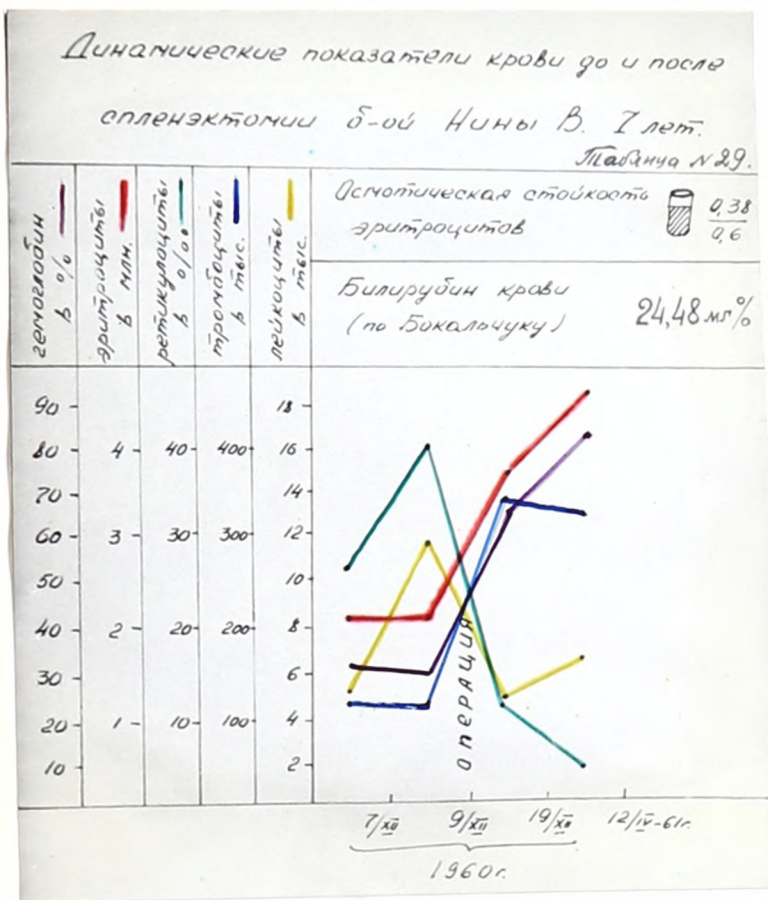 Динамические показатели крови до и после
спленэктомии б-ой Нины В. 7 лет.
Таблица N 29.
гемоглобин
в %
эритроциты
в млн.
ретикулоциты
в %₀₀
тромбоциты
в тыс.
лейкоциты
в тыс.
Осмотическая стойкость
эритроцитов
0,38
0,6
Билирубин крови
(по Бокальчуку)
24,48 мг%
90 18
80 4 40 400 16
70 14
60 3 30 300 12
50 10
40 2 20 200 8
30 6
20 1 10 100 4
10 2
ОПЕРАЦИЯ
7/XII 9/XII 19/XII 12/IV-61г.
1960г.